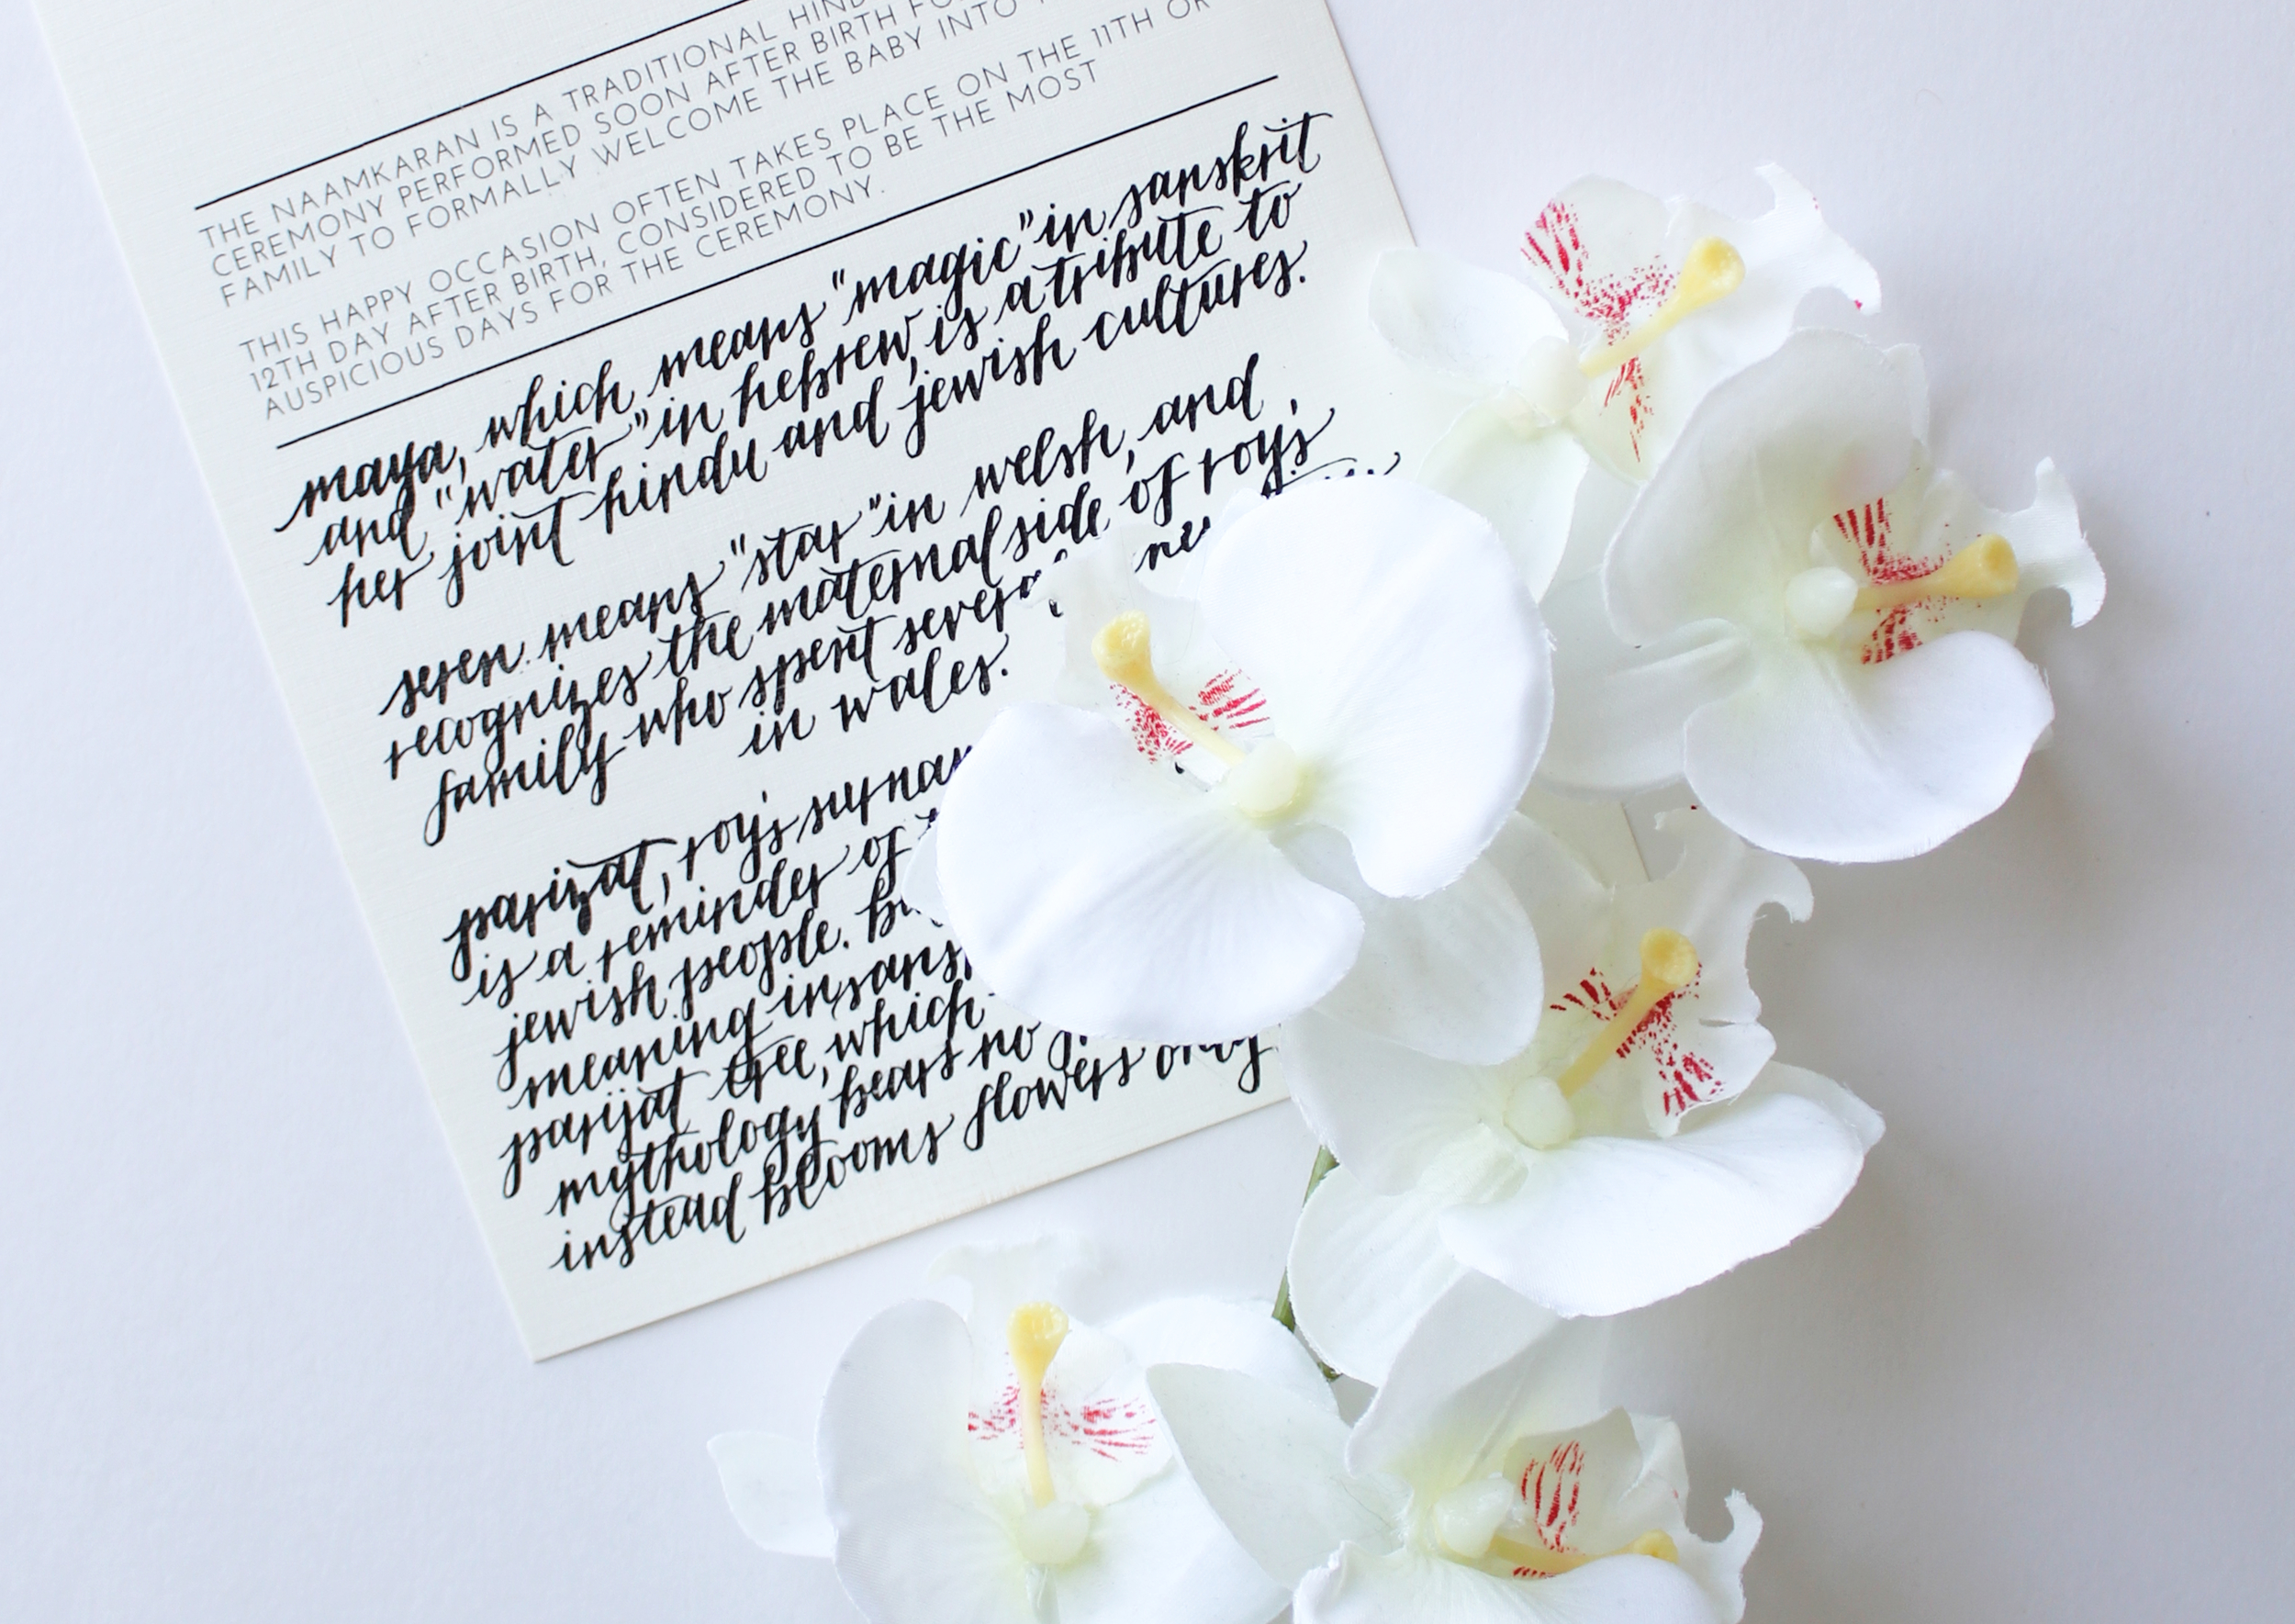 THE NAAMKARAN IS A TRADITIONAL
CEREMONY PERFORMED SOON AFTER BIRTH
FAMILY TO FORMALLY WELCOME THE BABY INTO
THIS HAPPY OCCASION OFTEN TAKES PLACE ON THE 11TH OR
12TH DAY AFTER BIRTH, CONSIDERED TO BE THE MOST
AUSPICIOUS DAYS FOR THE CEREMONY.
maya, which means "magic" in sanskrit
and "water" in hebrew, is a tribute to
her joint hindu and jewish cultures.
seren means "star" in welsh, and
recognizes the maternal side of roy's
family who spent
in wales.
parizat, roy's
is a reminder of
jewish people.
meaning in
parijat tree, which
mythology bears no
instead blooms flowers only